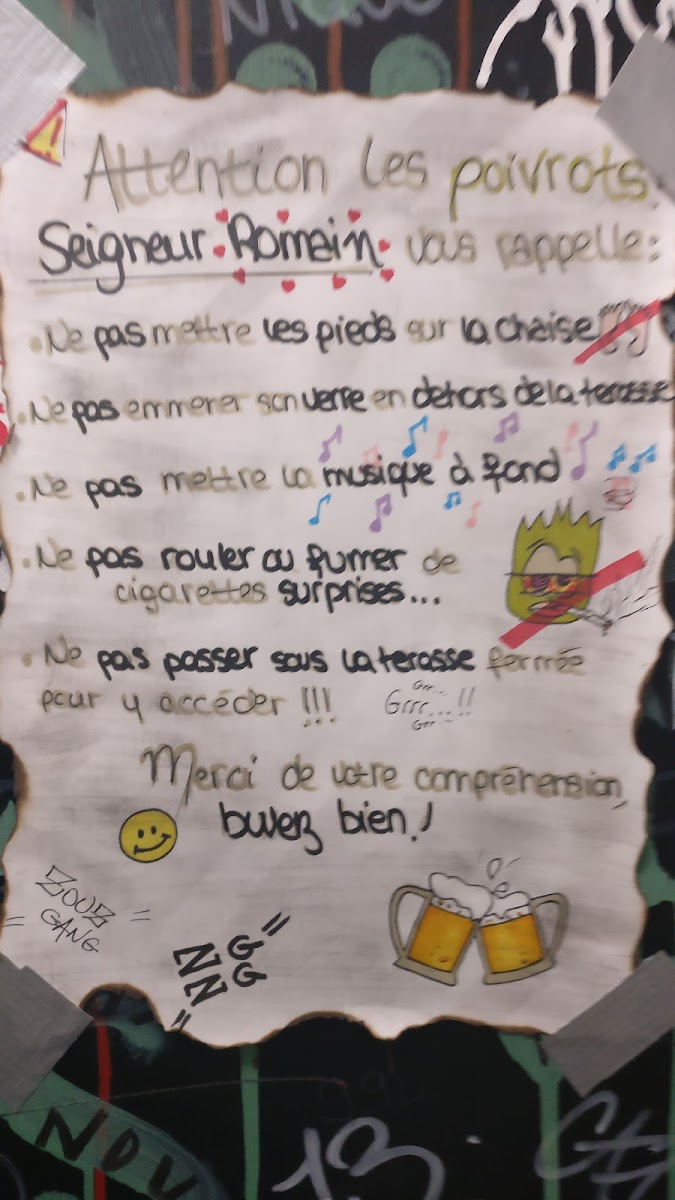 Attention les poivrots,
Seigneur Romain vous rappelle:
.Ne pas mettre les pieds sur la chaise
.Ne pas emmener son verre en dehors de la terasse
.Ne pas mettre la musique à fond
.Ne pas rouler ou fumer de
cigarettes surprises...
.Ne pas passer sous la terasse fermée
pour y accéder !!!
Grr...
Grrr...!!
Grr
Merci de votre compréhension,
buvez bien!
ZOUZ
GANG
GG
NN
NOV
13